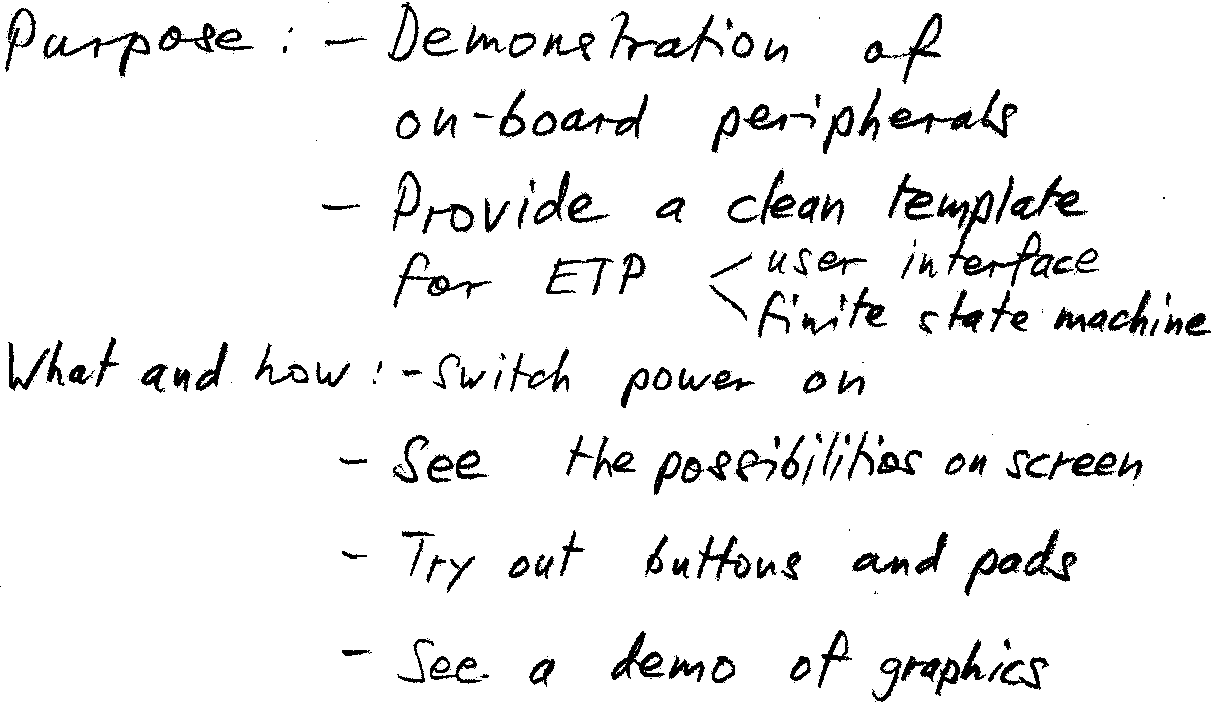 Purpose : - Demonstration of
on-board peripherals
- Provide a clean template
for ETP < user interface
finite state machine
What and how : - Switch power on
- See the possibilities on screen
- Try out buttons and pads
- See a demo of graphics